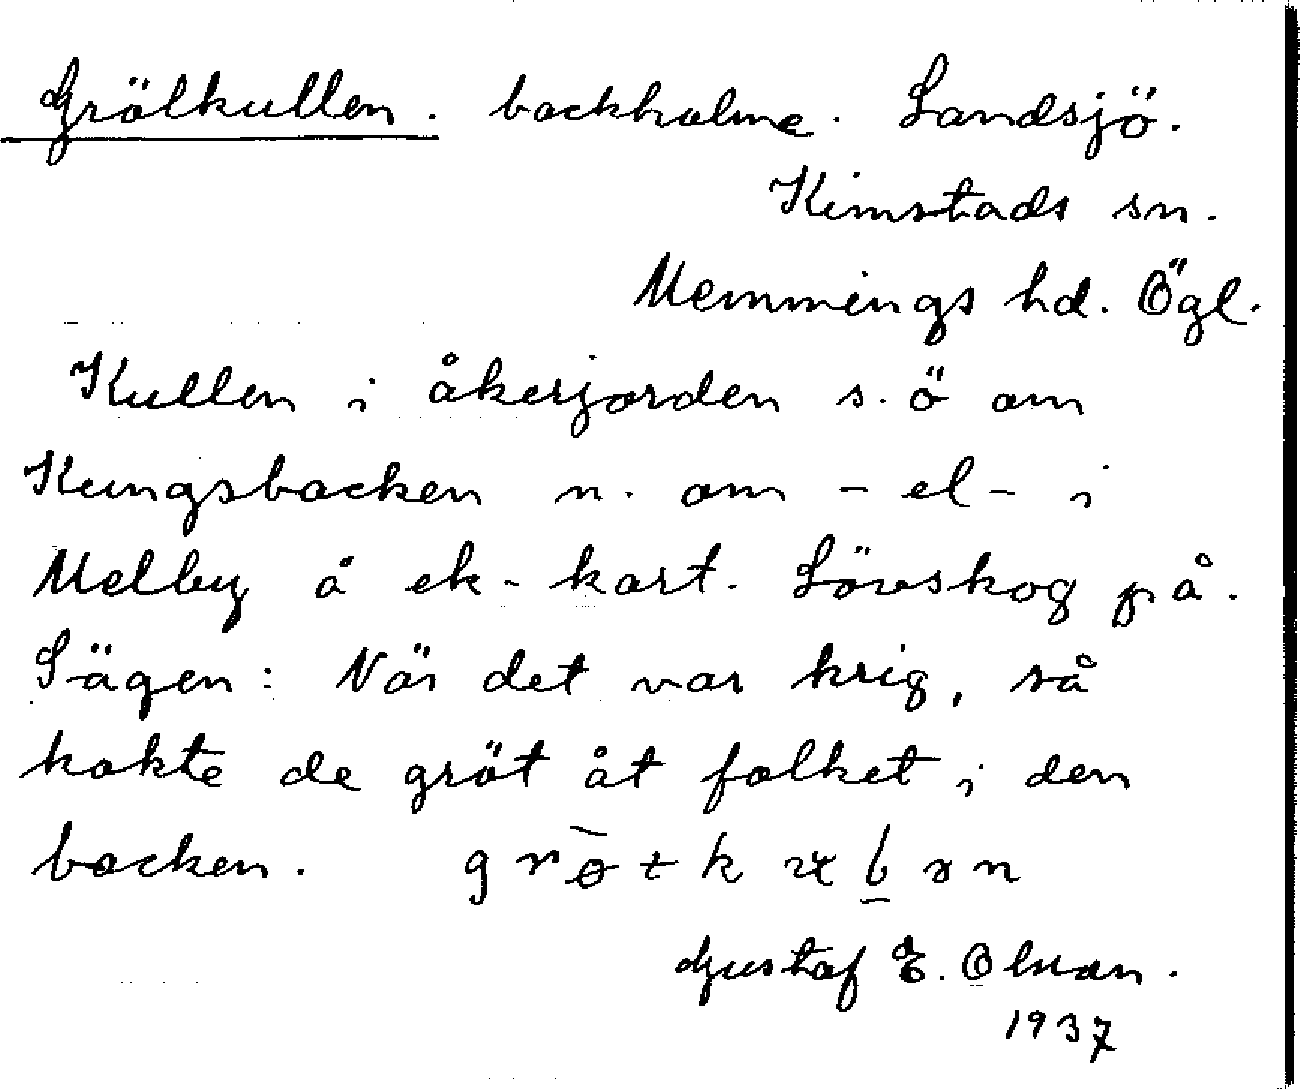 Grötkullen. backholme. Landsjö.
Kimstads sn.
Memmings hd. Ögl.
Kullen i åkerjorden s. ö om
Kungsbacken n. om - el - i
Melby å ek-kart. Lövskog på.
Sägen: När det var krig, så
kokte de gröt åt folket i den
backen.
Gustaf E. Olson.
1937